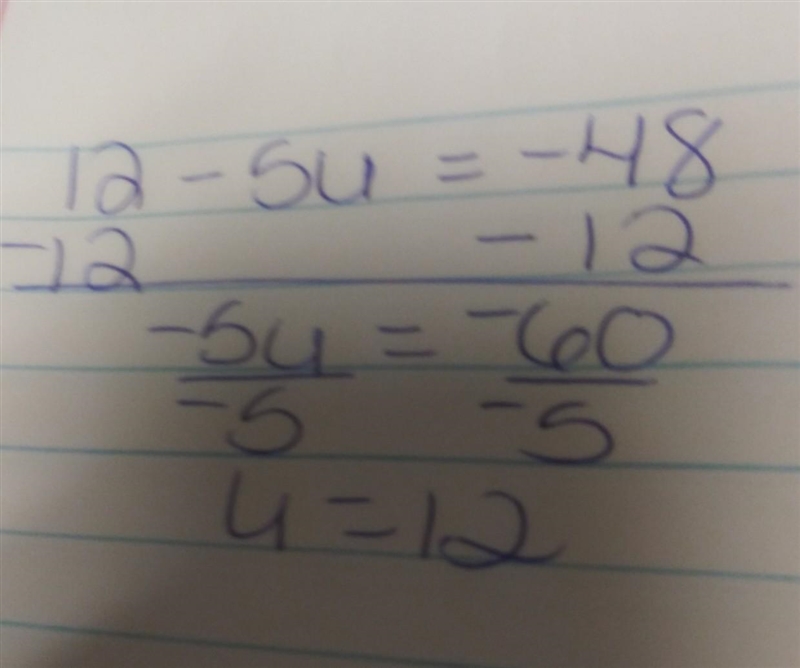 12 - 5u = -48
-12 - 12
-5u = -60
-5 -5
u = 12